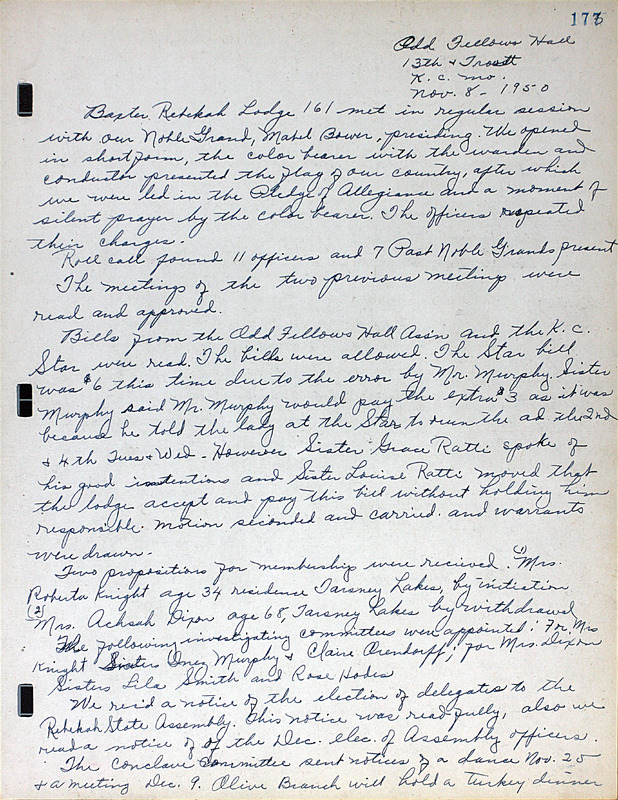 177
Odd Fellows Hall
13th & Troost
K.C. Mo.
Nov. 8 - 1950
Baxter Rebekah Lodge 161 met in regular session
with our Noble Grand, Mabel Bower, presiding. We opened
in short form, the color bearer with the warden and
conductor presented the flag of our country, after which
we were led in the Pledge of Allegiance and a moment of
silent prayer by the color bearer. The officers repeated
their charges.
Roll call found 11 officers and 7 Past Noble Grands present
The meetings of the two previous meetings were
read and approved.
Bills from the Odd Fellows Hall Ass'n and the K.C.
Star were read. The bills were allowed. The Star bill
was $6 this time due to the error by Mr. Murphy. Sister
Murphy said Mr. Murphy would pay the extra $3 as it was
because he told the lady at the Star to run the ad the 2nd
& 4th Tues & Wed - However Sister Grace Ratti spoke of
his good intentions and Sister Louise Ratti moved that
the lodge accept and pay this bill without holding him
responsible. Motion seconded and carried. and warrants
were drawn.
Two propositions for membership were recieved. (1) Mrs.
Roberta Knight age 34 residence Tarsney Lakes, by initiation
(2) Mrs. Achsah Dixon age 68, Tarsney Lakes by withdrawal
The following investigating committees were appointed: For Mrs
Knight Sisters Oney Murphy & Claire Orendorff; for Mrs. Dixon
Sisters Lila Smith and Rose Hodes
We rec'd a notice of the election of delegates to the
Rebekah State Assembly. This notice was read fully, also we
read a notice of of the Dec. elec. of Assembly officers.
The Conclave Committee sent notices of a dance Nov. 25
& a meeting Dec. 9. Olive Branch will hold a turkey dinner